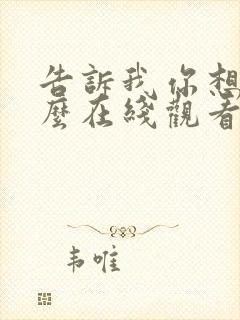 告訴我，你想
麼在綫觀看
韦唯